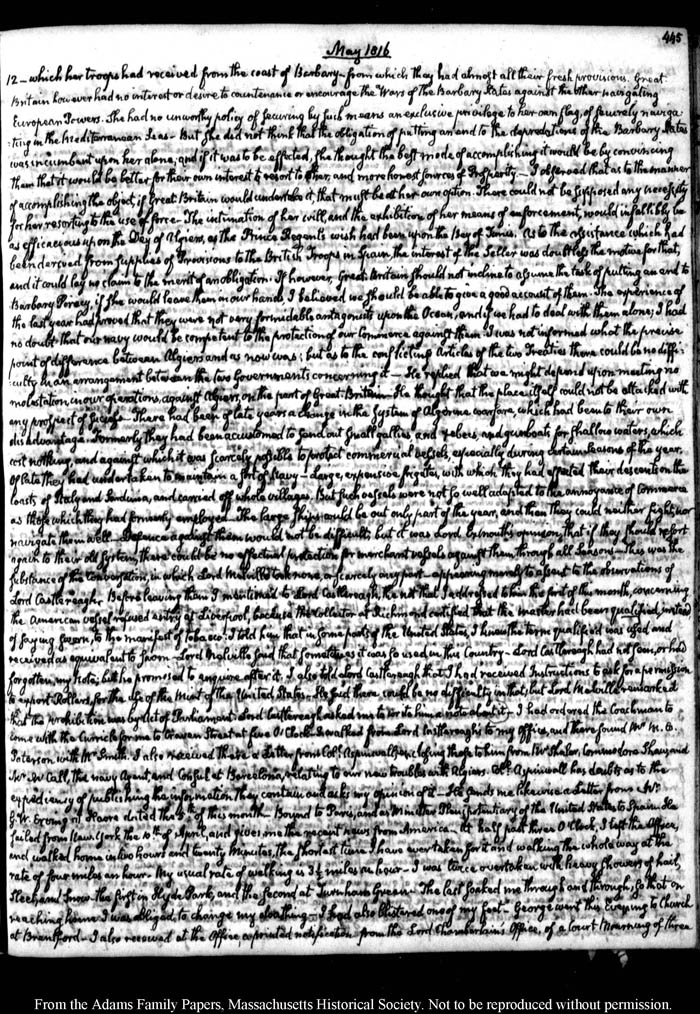 445
May 1816
12 - which her troops had received from the coast of Barbary - from which they had almost all their fresh provisions. Great
Britain however had no interest or desire to countenance or encourage the Wars of the Barbary States against the other navigating
European Powers. She had no unworthy policy of securing by such means an exclusive privilege to her own flag, of securely naviga-
-ting in the Mediterranean Seas - But she did not think that the obligation of putting an end to the depredations of the Barbary States
was incumbent upon her alone; and if it was to be effected, she thought the best mode of accomplishing it would be by convincing
them that it would be better for their own interest to resort to other, and more honest sources of Prosperity - I observed that as to the manner
of accomplishing the object, if Great Britain would undertake it, that must be at her own option. There could not be supposed any necessity
for her resorting to the use of force - The intimation of her will, and the exhibition of her means of enforcement, would infallibly be
as efficacious upon the Dey of Algiers, as the Prince Regent's wish had been upon the Bey of Tunis. As to the assistance which had
been derived from supplies of Provisions to the British Troops in Spain, the interest of the Seller was doubtless the motive for that,
and it could lay no claim to the merit of an obligation. If however, Great Britain should not incline to assume the task of putting an end to
Barbary Piracy, if she would leave them in our hands, I believed we should be able to give a good account of them. The experience of
the last year had proved that they were not very formidable antagonists upon the Ocean, and if we had to deal with them alone, I had
no doubt that our navy would be competent to the protection of our Commerce against them. I was not informed what the precise
point of difference between Algiers and us now was; but as to the conflicting Articles of the two Treaties there could be no diffi-
-culty in an arrangement between the two Governments concerning it - He replied that we might depend upon meeting no
molestation in our operations against Algiers, on the part of Great Britain - He thought that the place itself could not be attacked with
any prospect of success - There had been of late years a change in the System of Algerine warfare, which had been to their own
disadvantage. Formerly they had been accustomed to send out small gallies and xebecs, and gunboats for shallow waters, which
cost nothing, and against which it was scarcely possible to protect commercial vessels, especially during certain seasons of the year.
Of late they had undertaken to maintain a sort of Navy - large, expensive frigates, with which they had effected their descents on the
coasts of Italy and Sardinia, and carried off whole villages. But such vessels were not so well adapted to the annoyance of Commerce
as those which they had formerly employed - The large ships would be out only part of the year, and then they could neither fight, nor
navigate them well - Defence against them would not be difficult; but it was Lord Exmouth's opinion, that if they should resort
again to their old System, there could be no effectual protection for merchant vessels against them, through all Seasons - This was the
substance of the conversation, in which Lord Melville took none, or scarcely any part - appearing merely to assent to the observations of
Lord Castlereagh. Before leaving them I mentioned to Lord Castlereagh, the note that I addressed to him the first of this month, concerning
the American vessel refused entry at Liverpool, because the Collector at Richmond certified that the master had been qualified, instead
of saying sworn, to the manifest of tobacco. I told him that in some parts of the United States, I knew the term qualified was used and
received as equivalent to sworn - Lord Melville said that sometimes it was so used in this Country - Lord Castlereagh had not seen, or had
forgotten, my Note; but he promised to enquire after it. I also told Lord Castlereagh that I had received Instructions to ask for a permission
to export Rollers, for the use of the Mint of the United States. He said there could be no difficulty in that; but Lord Melville remarked
that the prohibition was by Act of Parliament. Lord Castlereagh asked me to write him a note about it - I had ordered the Coachman to
come with the Curricle for me to Craven Street at five O'Clock. I walked from Lord Castlereagh's to my office, and there found Mr. M. C.
Paterson with Mr. Smith. I also received there a Letter from Coll. Aspinwall, enclosing those to him from Mr. Shaler, Commodore Shaw, and
Mr. McCall, the navy Agent, and Consul at Barcelona, relating to our new troubles with Algiers. Coll. Aspinwall has doubts as to the
expediency of publishing the information they contain and asks my opinion of it - He sends me likewise a Letter from Mr.
G. W. Erving at Havre dated the of this month - Bound to Paris, and as Minister Plenipotentiary of the United States to Spain. He
sailed from New York the 10th. of April, and gives me the recent news from America - At half past three O'Clock, I left the Office,
and walked home in two hours and twenty Minutes, the shortest time I have ever taken for it and walking the whole way at the
rate of four miles an hour - My usual rate of walking is 3½ miles an hour - I was twice overtaken with heavy showers of hail,
sleet, and snow - the first in Hyde Park, and the second at Turnham Green - The last soaked me through and through, so that on
reaching home I was obliged to change my cloathing - I had also blistered one of my feet - George went this Evening to Church
at Brentford - I also received at the Office, a printed notification from the Lord Chamberlain's Office, of a Court Mourning of three
From the Adams Family Papers, Massachusetts Historical Society. Not to be reproduced without permission.